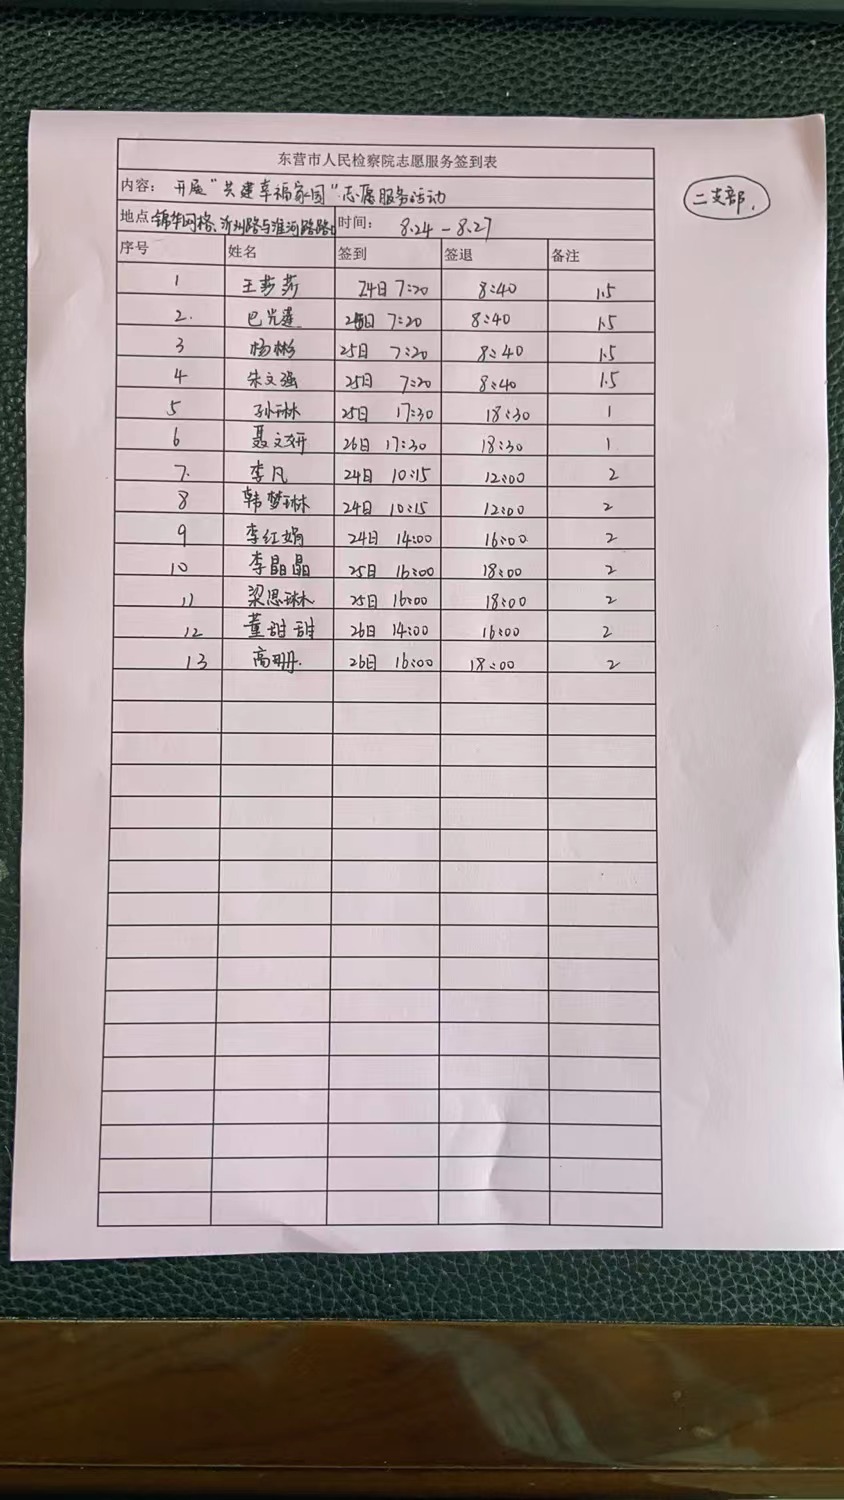 东营市人民检察院志愿服务签到表
内容: 开展"共建幸福家园"志愿服务活动
二支部.
地点:锦华网格、沂州路与淮河路路 时间: 8.24-8.27
序号 姓名 签到 签退 备注
1 王莎莎 24日 7:20 8:40 1.5
2. 巴光莲 25日 7:20 8:40 1.5
3 杨彬 25日 7:20 8:40 1.5
4 朱文强 25日 7:20 8:40 1.5
5 孙琳 25日 17:30 18:30 1
6 聂文妍 26日 17:30 18:30 1
7. 李凡 24日 10:15 12:00 2
8 韩梦琳 24日 10:15 12:00 2
9 李红娟 24日 14:00 16:00 2
10 李晶晶 25日 16:00 18:00 2
11 梁思琳 25日 16:00 18:00 2
12 董甜甜 26日 14:00 16:00 2
13 高珊. 26日 16:00 18:00 2